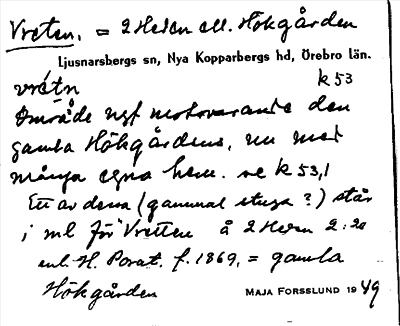 Vreten. = 2 Heden ell. Hökgården
Ljusnarsbergs sn, Nya Kopparbergs hd, Örebro län.
vrétn k 53
Område ngt motsvarande den
gamla Hökgårdens, nu med
många egna hem. se k 53,1
Ett av dessa (gammal stuga?) står
i ml för Vretten å 2 Heden 2:20
enl. H. Porat. f. 1869, = gamla
Hökgården MAJA FORSSLUND 1949